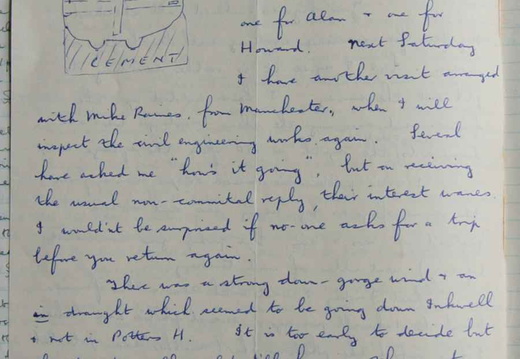 CEMENT
one for Alan + one for
Howard. Next Saturday
I have another visit arranged
with Mike Raines, from Manchester, when I will
inspect the civil engineering works again. Several
have asked me "how's it going", but on receiving
the usual non-commital reply, their interest wanes.
I would'nt be surprised if no-one asks for a trip
before you return again.
There was a strong down-gorge wind & an
in draught which seemed to be going down Inkwell
& not in Potters H. It is too early to decide but